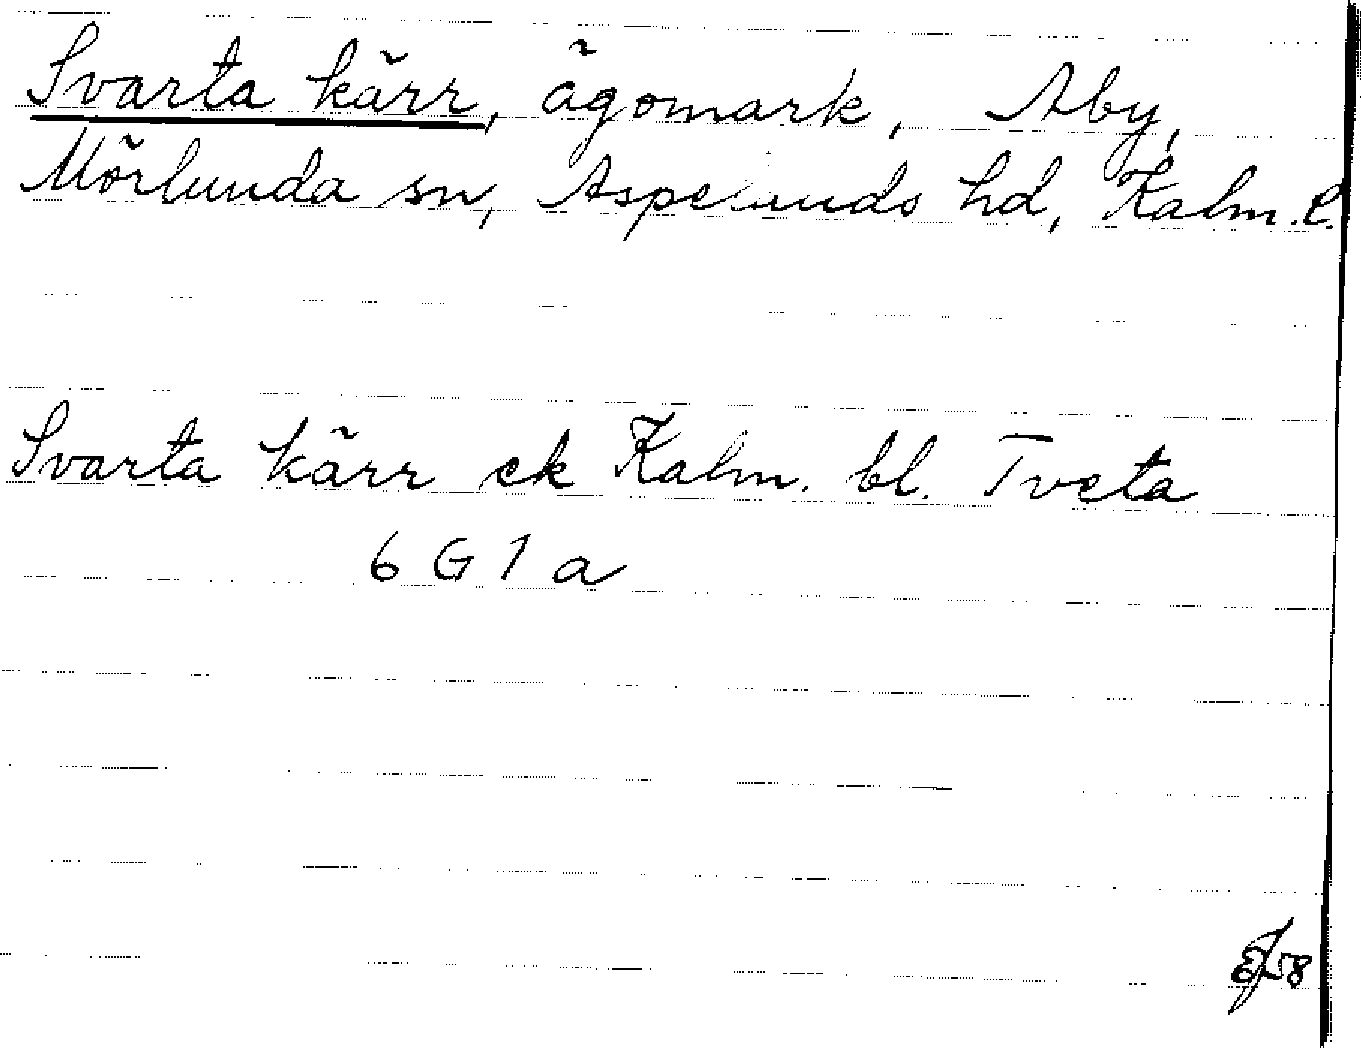 Svarta kärr, ägomark, Åby,
Mörlunda sn, Aspelands hd, Kalm. l.
Svarta kärr ek Kalm. bl. Tveta
6 G 1 a